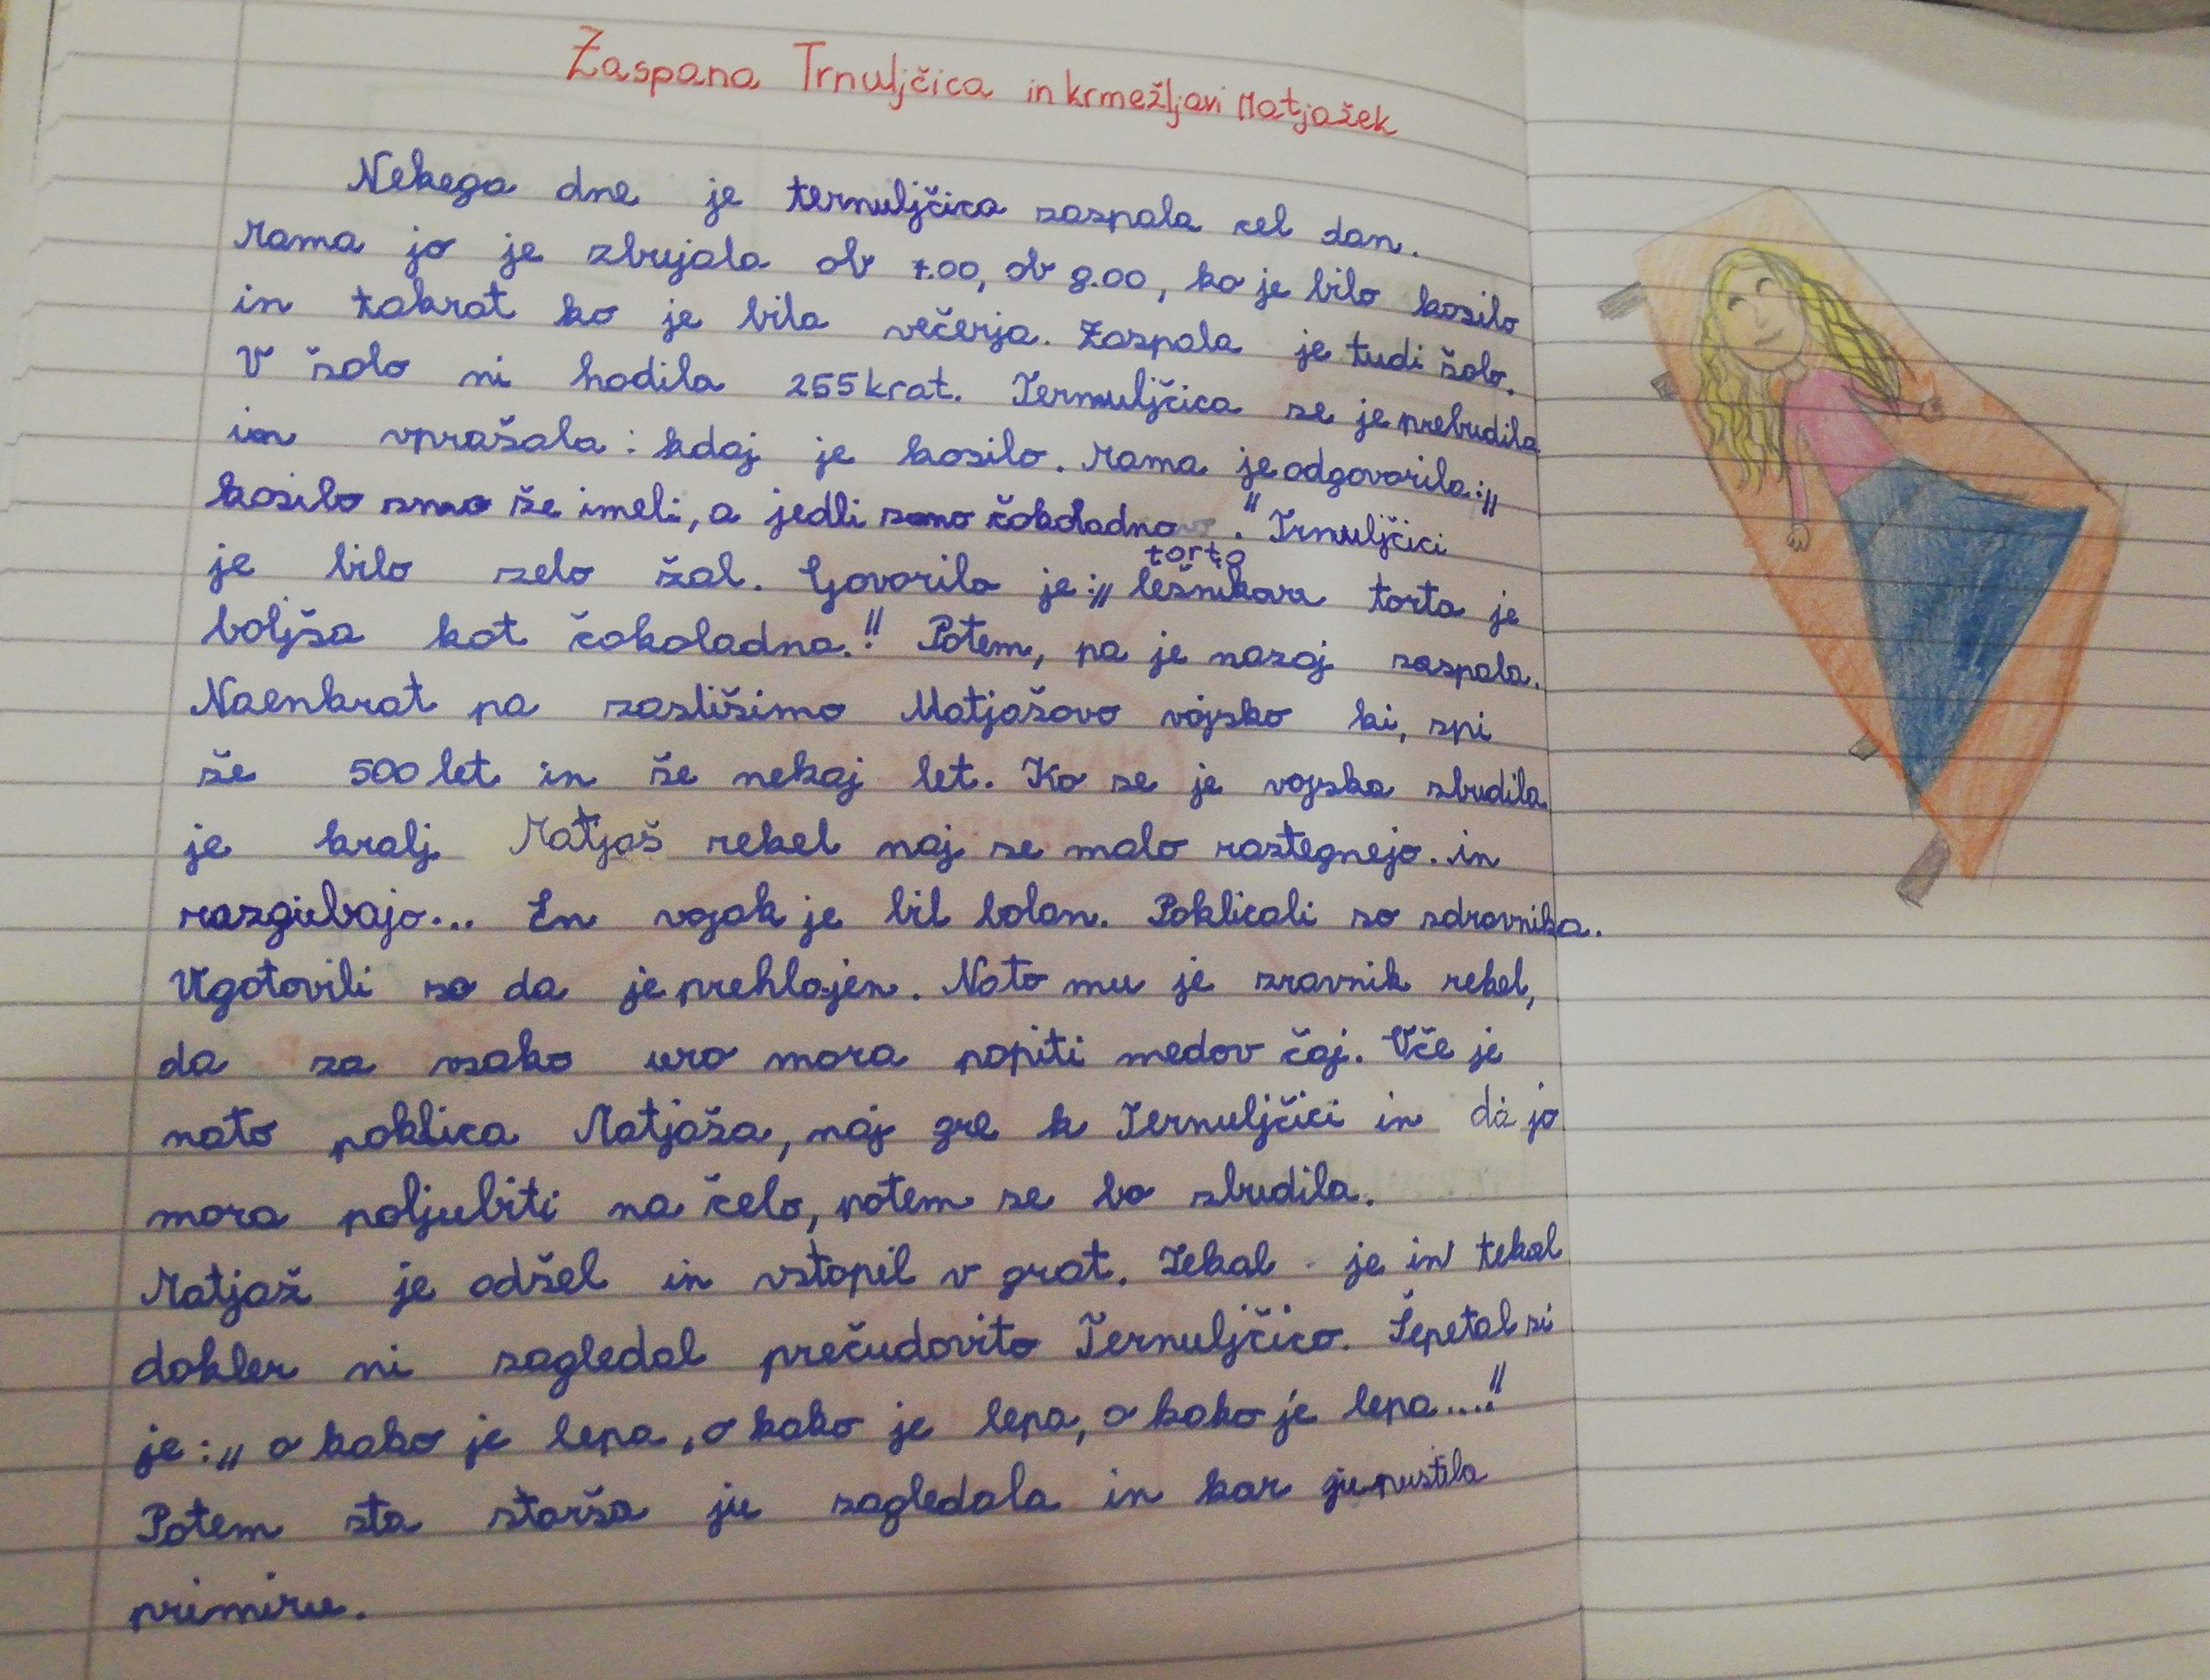 Zaspana Trnuljčica in krmežljavi Matjažek
Nekega dne je ternuljčica zaspala cel dan.
Mama jo je zbujala ob 7.00, ob 8.00, ko je bilo kosilo
in takrat ko je bila večerja. Zaspala je tudi šolo.
V šolo ni hodila 255krat. Ternuljčica se je prebudila
in vprašala: kdaj je kosilo. Mama je odgovorila:„
kosilo smo že imeli, a jedli smo čokoladno torto.“ Trnuljčici
je bilo zelo žal. Govorila je:„ lešnikova torta je
boljša kot čokoladna.“ Potem, pa je nazaj zaspala.
Naenkrat pa zaslišimo Matjažovo vojsko ki, spi
že 500 let in še nekaj let. Ko se je vojska zbudila
je kralj Matjaš rekel naj se malo raztegnejo. in
razgibajo... En vojak je bil bolan. Poklicali so zdravnika.
Ugotovili so da je prehlajen. Nato mu je zravnik rekel,
da za vsako uro mora popiti medov čaj. Vče je
nato poklica Matjaža, naj gre k Ternuljčici in da jo
mora poljubiti na čelo, potem se bo zbudila.
Matjaž je odšel in vstopil v grat. Tekal je in tekal
dokler ni zagledal prečudovito Ternuljčico. Šepetal si
je:„ o kako je lepa, o kako je lepa, o kako je lepa....“
Potem sta starša ju zagledala in kar ju pustila
primiru.